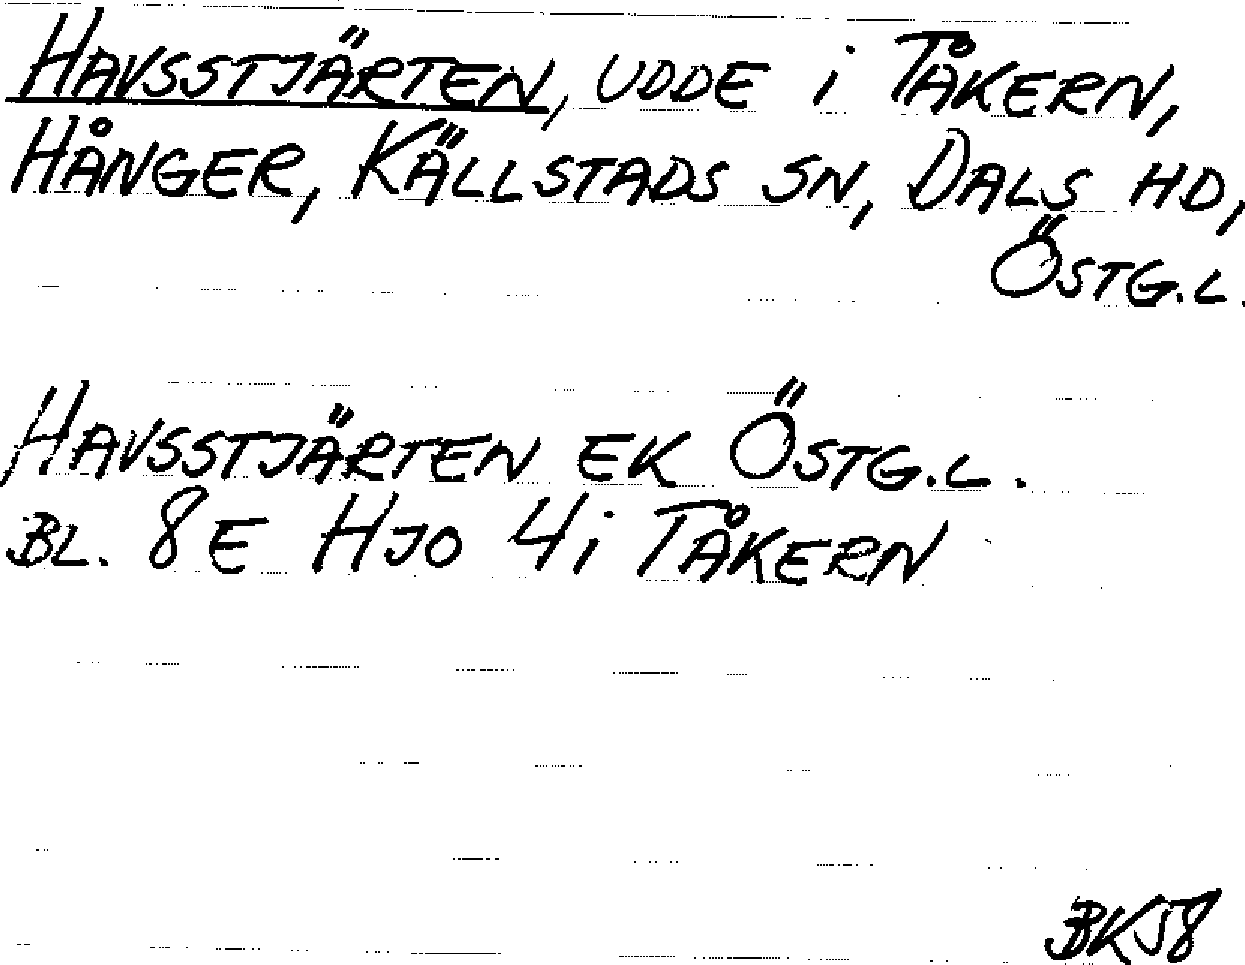 HAVSSTJÄRTEN, UDDE i TÅKERN,
HÅNGER, KÄLLSTADS SN, DALS HD,
ÖSTG.L.
HAVSSTJÄRTEN EK ÖSTG.L.
BL. 8E HJO 4i TÅKERN
BK58